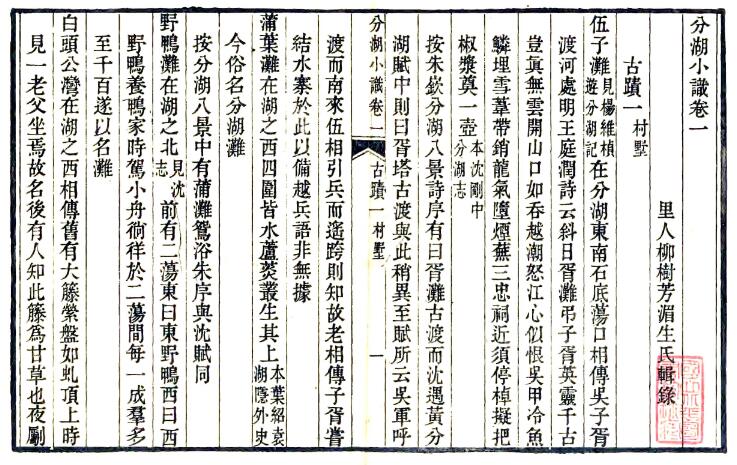 分湖小識卷一
里人柳樹芳湄生氏輯錄
古蹟一村墅
伍子灘見楊維楨遊分湖記在分湖東南石底蕩口相傳吳子胥
渡河處明王庭潤詩云斜日胥灘弔子胥英靈千古
豈眞無雲開山口如吞越潮怒江心似恨吳甲冷魚
鱗埋雪葦帶銷龍氣墮煙蕪三忠祠近須停棹擬把
椒漿奠一壺本沈剛中分湖志
按朱嶔分湖八景詩序有曰胥灘古渡而沈遇黃分
湖賦中則曰胥塔古渡與此稍異至賦所云吳軍呼
分湖小識卷一 古蹟一村墅 一
渡而南來伍相引兵而遙跨則知故老相傳子胥嘗
結水寨於此以備越兵語非無據
蒲葉灘在湖之西四圍皆水蘆菼叢生其上本葉紹袁湖隱外史
今俗名分湖灘
按分湖八景中有蒲灘鴛浴朱序與沈賦同
野鴨灘在湖之北見沈志前有二蕩東曰東野鴨西曰西
野鴨養鴨家時駕小舟徜徉於二蕩間每一成羣多
至千百遂以名灘
白頭公灣在湖之西相傳舊有大籐縈盤如虬頂上時
見一老父坐焉故名後有人知此籐爲甘草也夜劚